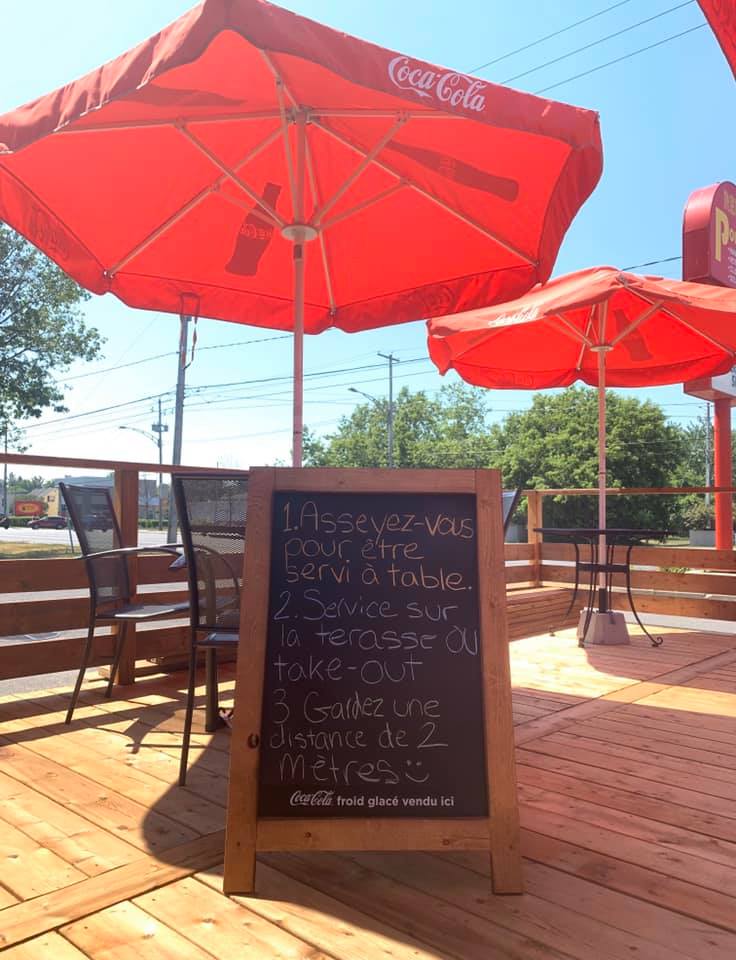 Coca-Cola
Coca-Cola
1. Asseyez-vous
pour être
servi à table.
2. Service sur
la terasse OU
take-out
3 Gardez une
distance de 2
mètres
Coca-Cola froid glacé vendu ici